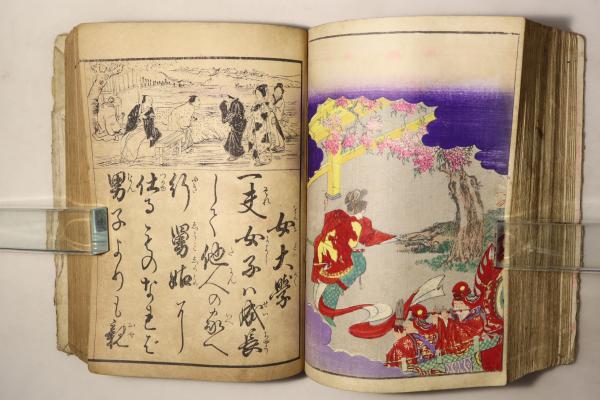 女大學
一夫女子ハ成長
して他人の家へ
行舅姑に
仕るものなれば
男子よりも親